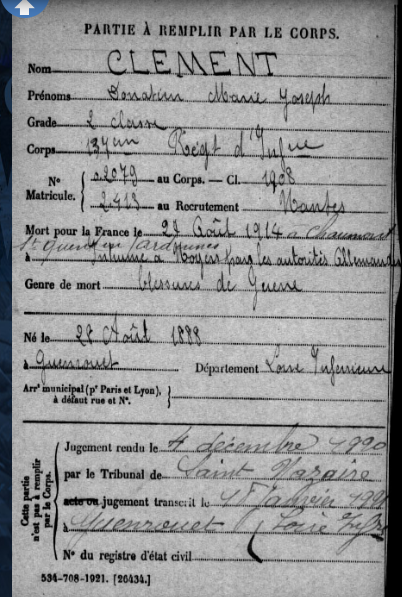 PARTIE À REMPLIR PAR LE CORPS.
Nom CLEMENT
Prénoms Donatien Marie Joseph
Grade 2 classe
Corps 137 em Regt d'Infrie
Nº Matricule. { 02079 au Corps. — Cl. 1908
2413 au Recrutement Nantes
Mort pour la France le 28 Août 1914 à Chaumont
St Quentin Ardennes
à Inhumé a Noyers par les autorités Allemandes
Genre de mort blessures de Guerre
Né le 28 Août 1888
à Guenrouet Département Loire Inferieure
Arrᵗ municipal (pʳ Paris et Lyon), à défaut rue et Nº. }
Cette partie n'est pas à remplir par le Corps.
Jugement rendu le 4 décembre 1920
par le Tribunal de Saint Nazaire
acte ou jugement transcrit le janvier
à Guenrouet Loire Infre
Nº du registre d'état civil
534-708-1921. [26434.]